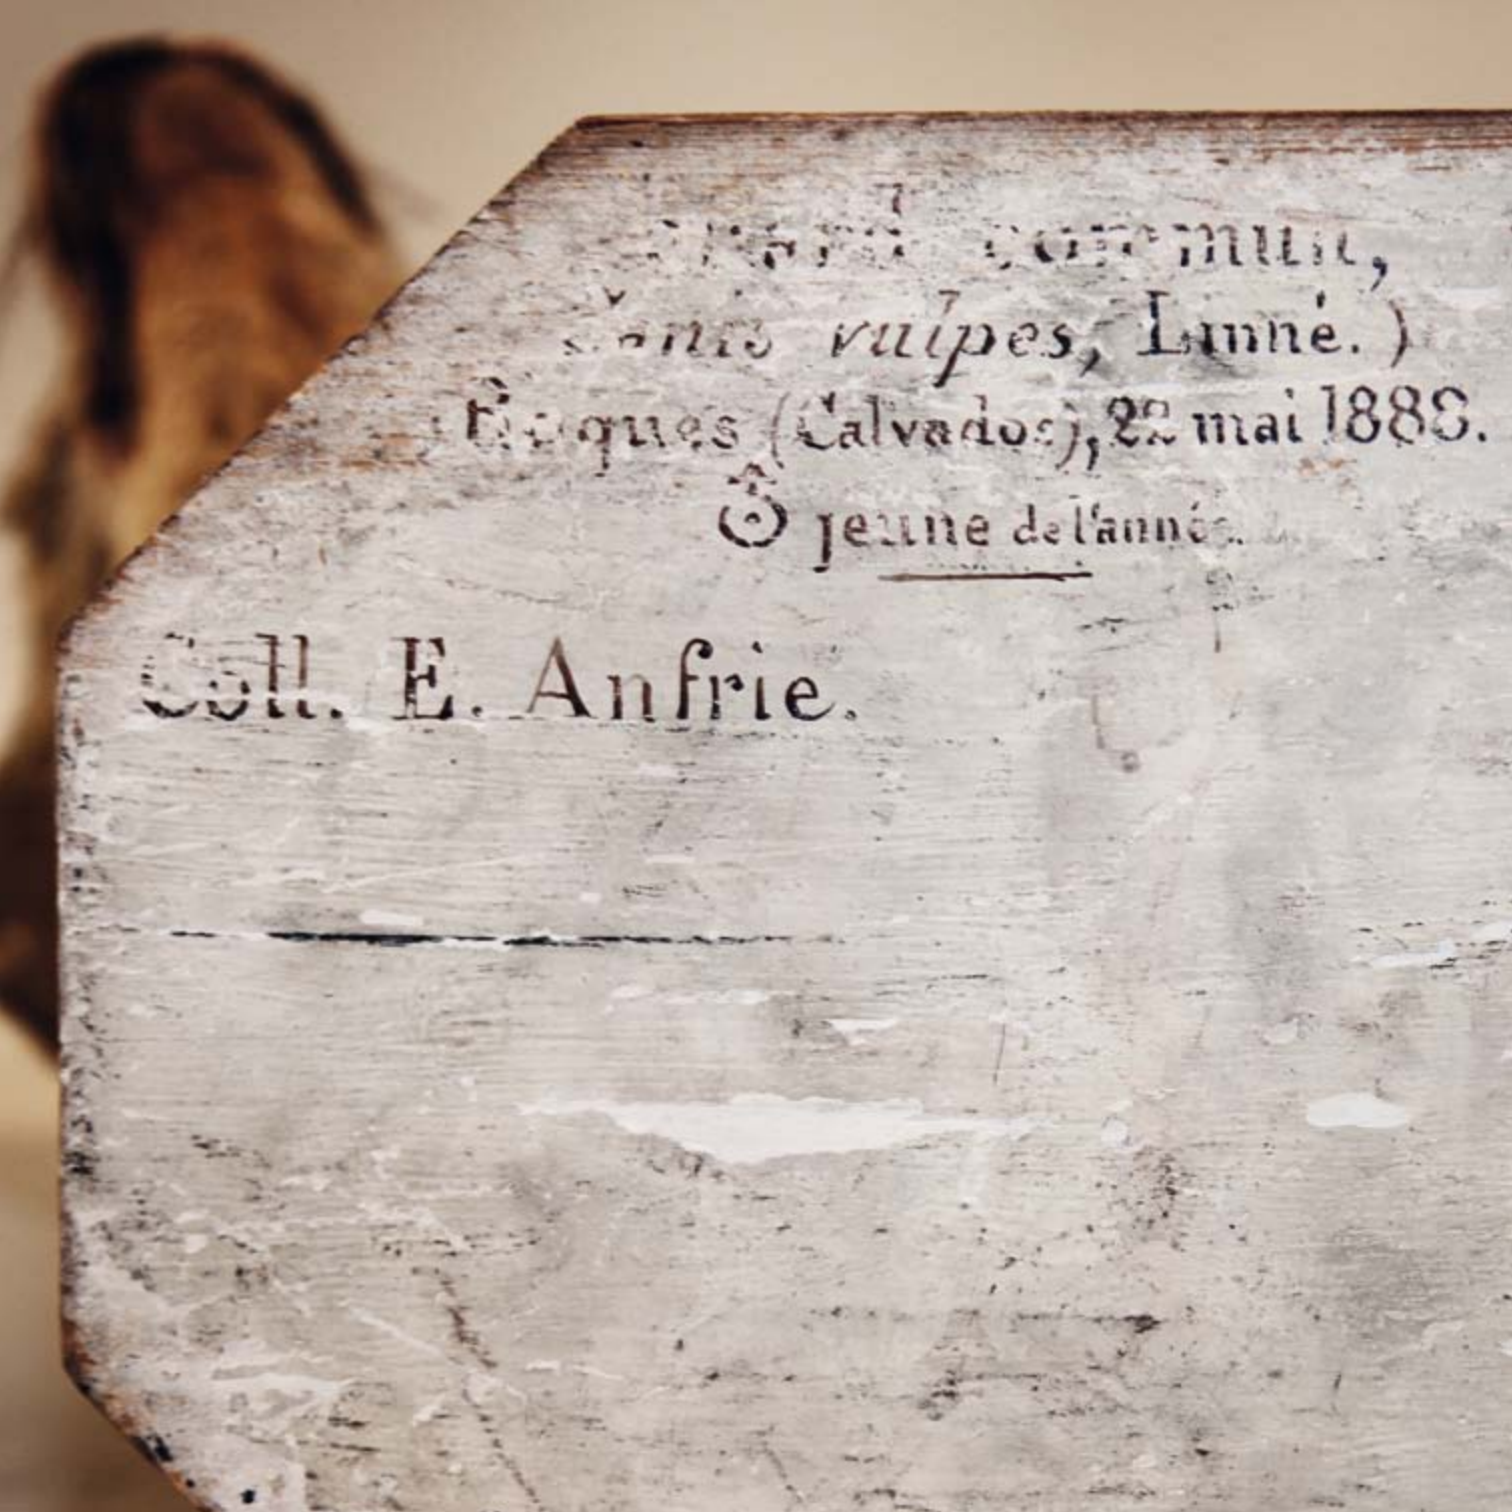 Renard commun,
Canis vulpes, Linné.)
(Calvados), 22 mai 1888.
♂ jeune de l'année.
Coll. E. Anfrie.